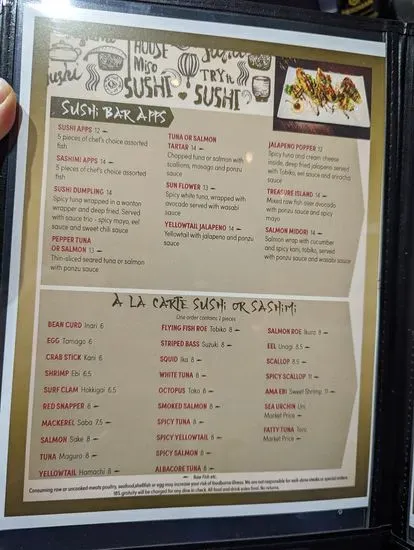 HOUSE
Miso
SUSHI
TRY it
SUSHI
Sushi
SUSHI BAR APPS
SUSHI APPS 12
5 pieces of chef's choice assorted
fish
SASHIMI APPS 14
5 pieces of chef's choice assorted
fish
SUSHI DUMPLING 14
Spicy tuna wrapped in a wonton
wrapper and deep fried. Served
with sauce trio - spicy mayo, eel
sauce and sweet chili sauce
PEPPER TUNA
OR SALMON 13
Thin-sliced seared tuna or salmon
with ponzu sauce
TUNA OR SALMON
TARTAR 14
Chopped tuna or salmon with
scallions, masago and ponzu
sauce
SUN FLOWER 13
Spicy white tuna, wrapped with
avocado served with wasabi
sauce
YELLOWTAIL JALAPENO 14
Yellowtail with jalapeno and ponzu
sauce
JALAPENO POPPER 12
Spicy tuna and cream cheese
inside, deep fried jalapeno served
with Tobiko, eel sauce and sriracha
sauce
TREASURE ISLAND 14
Mixed raw fish over avocado
with ponzu sauce and spicy
mayo
SALMON MIDORI 14
Salmon wrap with cucumber
and spicy kani, tobiko, served
with ponzu and wasabi sauce
A LA CARTE SUSHI OR SASHIMI
One order contains 2 pieces
BEAN CURD Inari 6
EGG Tamago 6
CRAB STICK Kani 6
SHRIMP Ebi 6.5
SURF CLAM Hokkigai 6.5
RED SNAPPER 8
MACKEREL Saba 7.5
SALMON Sake 8
TUNA Maguro 8
YELLOWTAIL Hamachi 8
FLYING FISH ROE Tobiko 8
STRIPED BASS Suzuki 8
SQUID Ika 8
WHITE TUNA 8
OCTOPUS Tako 8
SMOKED SALMON 8
SPICY TUNA 8
SPICY YELLOWTAIL 8
SPICY SALMON 8
ALBACORE TUNA 8
SALMON ROE Ikura 8
EEL Unagi 8.5
SCALLOP 8.5
SPICY SCALLOP 11
AMA EBI Sweet Shrimp 11
SEA URCHIN Uni
Market Price
FATTY TUNA Toro
Market Price
Raw Fish etc.
Consuming raw or uncooked meats poultry, seafood,shellfish or egg may increase your risk of foodborne illness. We are not responsible for well-done steaks or special orders.
18% gratuity will be charged for any dine in check. All food and drink sales final. No returns.